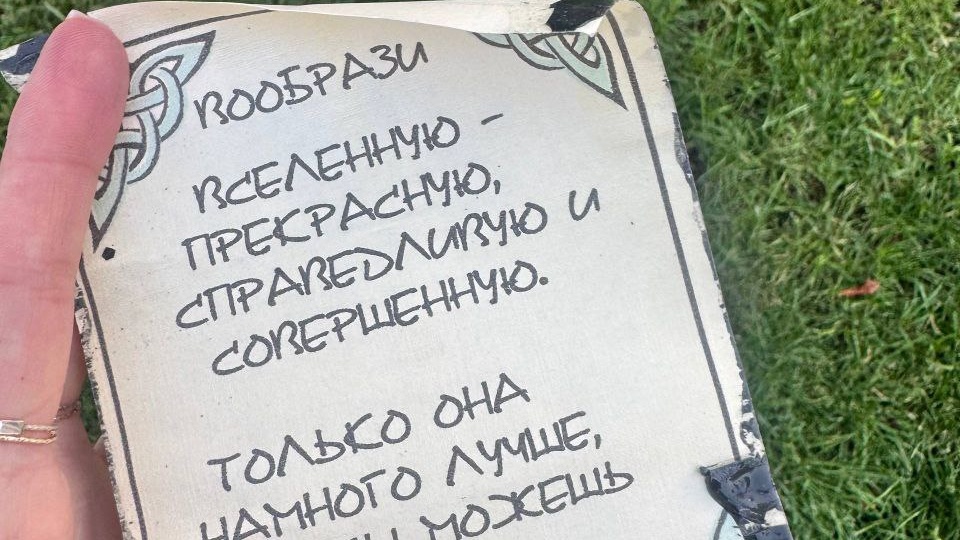 ВООБРАЗИ
ВСЕЛЕННУЮ -
ПРЕКРАСНУЮ,
СПРАВЕДЛИВУЮ И
СОВЕРШЕННУЮ.
ТОЛЬКО ОНА
НАМНОГО ЛУЧШЕ,
МОЖЕШЬ